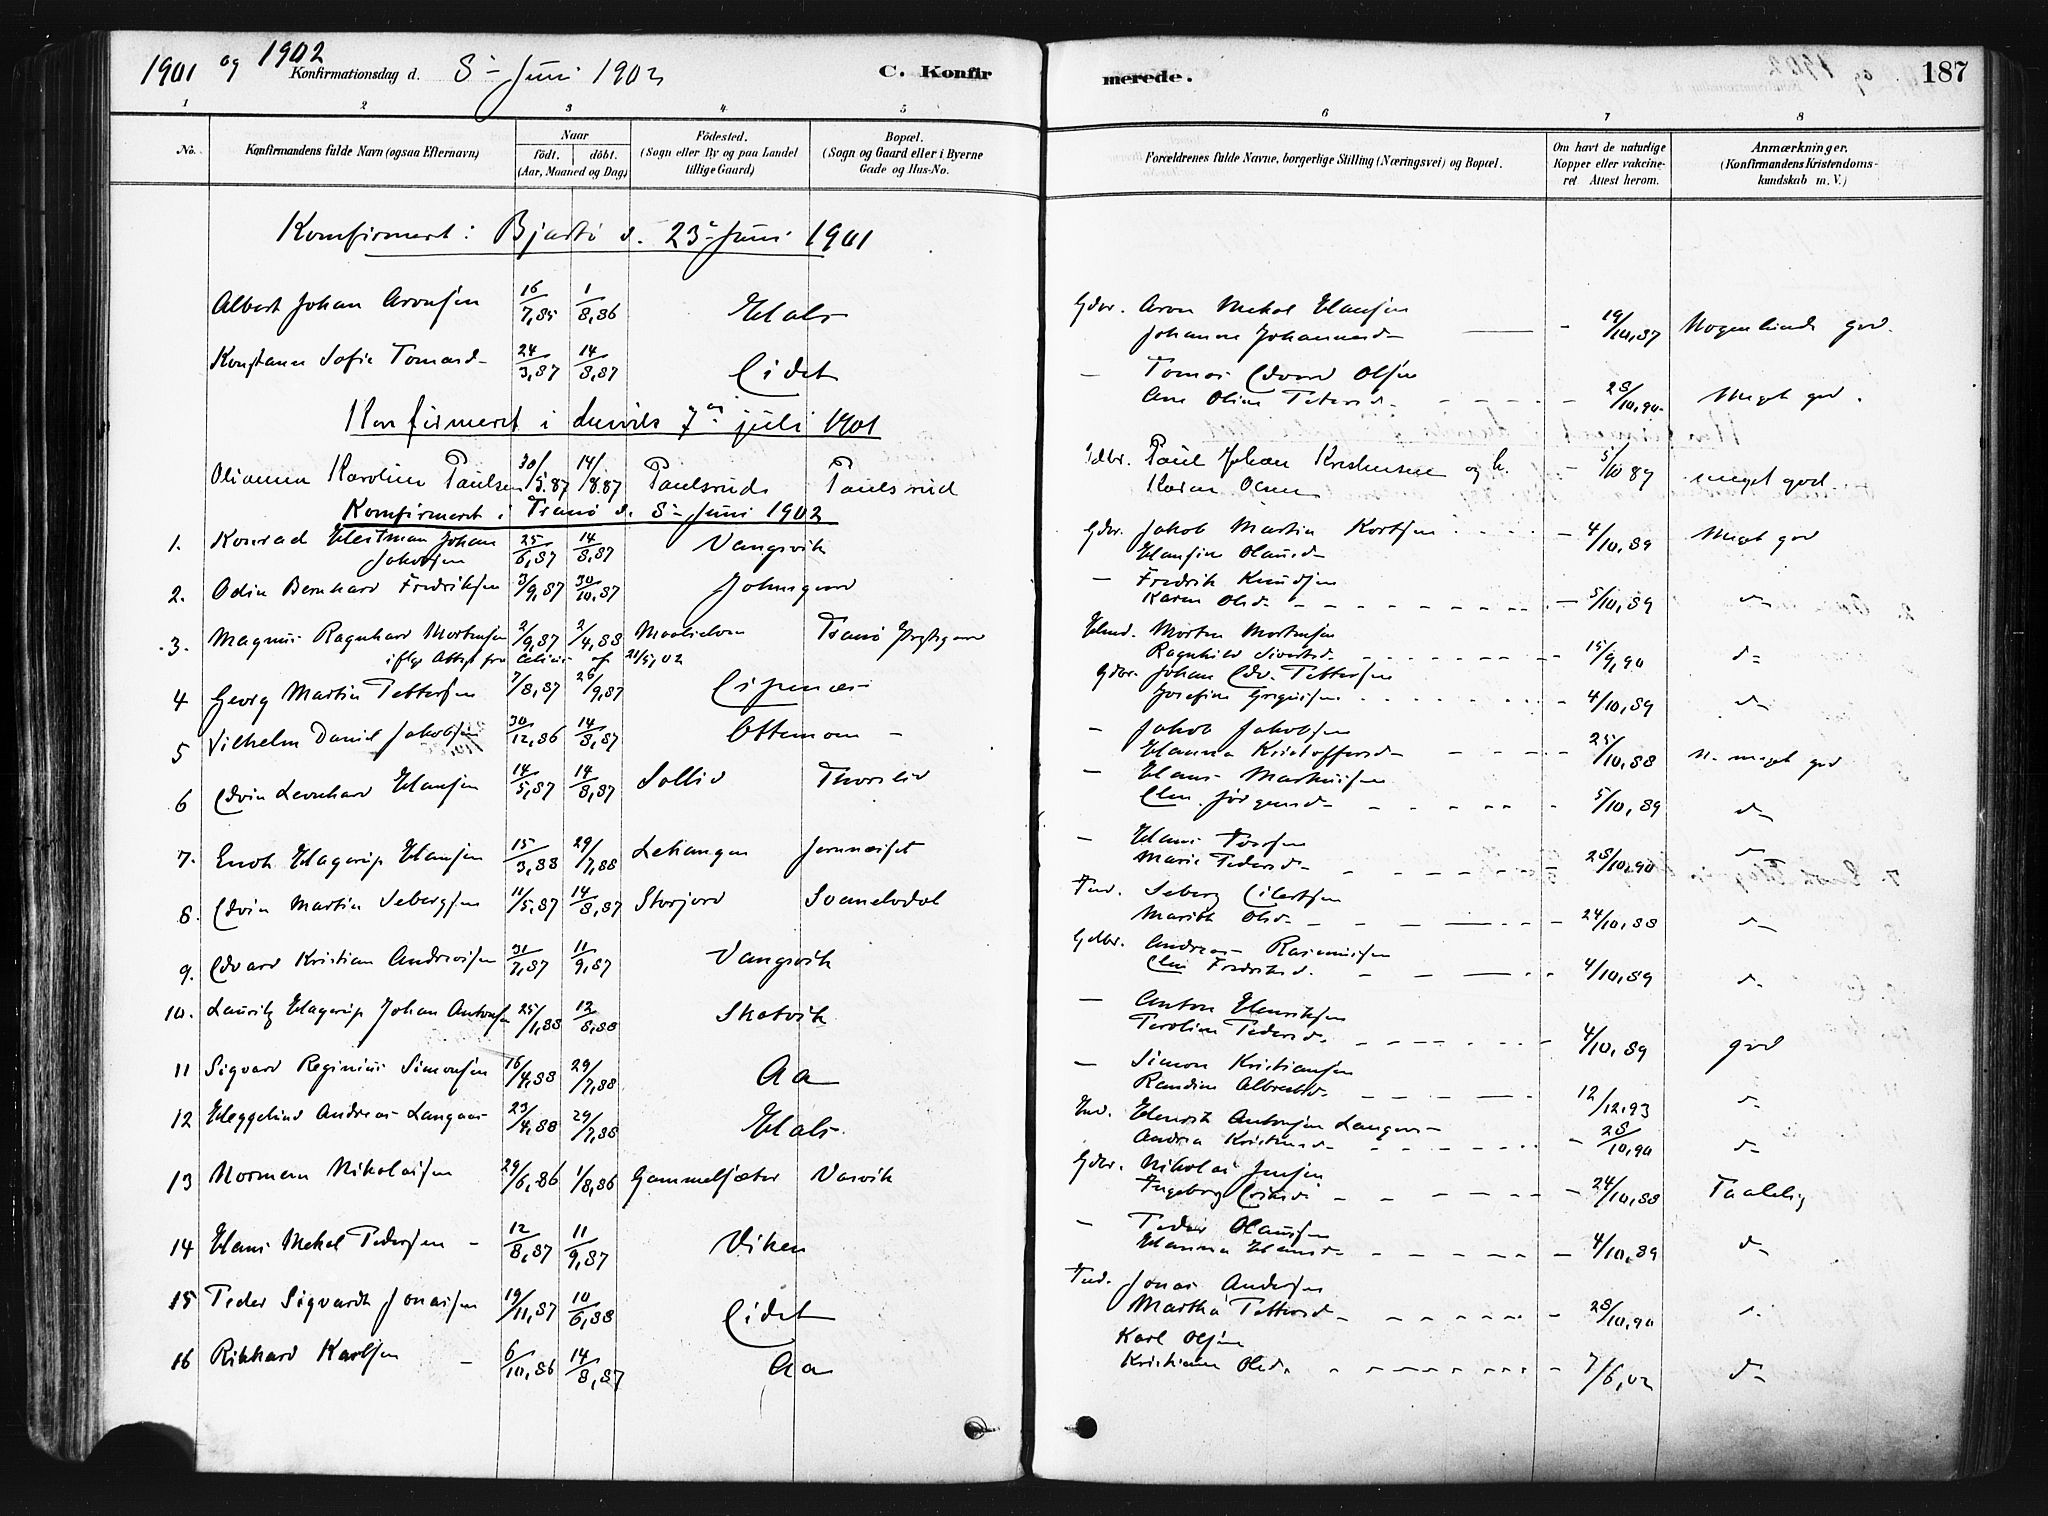 1901 og 1902 Konfirmationsdag d. 8- Juni 1902 C. Konfirmerede. 187
1 2 3 4 5 6 7 8
No. Konfirmandens fulde Navn (ogsaa Efternavn) Naar født. døbt. (Aar, Maaned og Dag) Födested. (Sogn eller By og paa Landet tillige Gaard) Bopæl. (Sogn og Gaard eller i Byerne Gade og Hus-No. Forældrenes fulde Navne, borgerlige Stilling (Næringsvei) og Bopæl. Om havt de naturlige Kopper eller vakcineret Attest herom. Anmærkninger. (Konfirmandens Kristendomskundskab m. V.)
Konfirmert: d. 23- Juni 1901
Albert Johan Aronsen 16/7,85 1/8,86 Hals Gdbr. Aron Mekal Hansen
Johanna 19/10,87 Nogenlunde god.
Sofie Tomasd- 24/3,87 14/8,87 Eidet - Tomas Edvard Olsen
Ane Oline Petersd- 28/10,90 Meget god.
Konfirmeret i 7de juli 1901
Karoline Paulsen 30/5.87 14/8.87 Paulsrud Paulsrud Gdbr. Paul Johan Kristensen og h.
Karen 5/10 89 meget god
Konfirmeret i Tranø d. 8- Juni 1902
1. Konrad Hartman Johan
Jakobsen 25/6,87 14/8,87 Vangsvik Gdbr. Jakob Martin Kortsen
Hansine Olausd- 4/10,89 Meget god
2. Odin Bernhard Fredriksen 3/9,87 30/10,87 Johnsgaard - Fredrik Knudsen
Karen Olsd- 5/10,89 d-
3. Magnus Ragnhard Mortensen 2/9,87 2/4,88 Maalselven Tranø Morten Mortensen
Ragnhild Sivertsd- 15/9,90 d-
iflg. Attest fra af 21/5,02
4 Georg Martin Pettersen 7/8,87 26/9,87 Espenæs Gdbr. Johan Edv. Pettersen
Josefine 4/10,89 d-
5 Vilhelm Daniel Jakobsen 30/12,86 14/8,87 - Jakob Jakobsen
Hanna Kristoffersd- 25/10,88 N. meget god
6 Edvin Leonhard Hansen 14/5,87 14/8,87 Sollid Thorslid - Hans Markusen
Elen Jørgensd- 5/10,89 d-
7. Enok Hagerup Hansen 15/3,88 29/7,88 Lekangen - Hans
Marie Pedersd- 28/10,90 d-
8. Edvin Martin Sebergsen 11/5,87 14/8,87 Storjord Svanelvdal Ind. Seberg Eilertsen
Marith Olsd- 24/10,88 d-
9. Edvard Kristian Andreassen 31/7,87 11/9,87 Vangsvik Gdbr. Andreas Rasmussen
Elen Fredriksd. 4/10,89 d-
10. Lauritz Hagerup Johan Antonsen 25/1,88 12/8,88 Skatvik - Anton Henriksen
Peroline Pedersd. 4/10,89 god
11 Sigvard Reginius Simonsen 16/4,88 29/7,88 Aa - Simon Kristiansen
Randine Albrektsd- 12/12,93 d-
12 Heggelund Andreas Langaas 23/4,88 29/7,88 Hals Ind. Henrik Antonsen Langaas
Andrea 28/10,90 d-
13 Norman Nikolaisen 29/6,86 1/8,86 Gammelsæter Vasvik Gdbr. Nikolai Jensen
Ingeborg 24/10,88 Taalelig
14 Hans Mekal Pedersen - 12/8,87 11/9,87 Viken - Peder Olaussen
Hanna Hansd- 4/10,89 d-
15 Peder Sigvardt Jonassen 19/11,87 10/6,88 Eidet Ind. Jonas Andersen
Martha Pettersd- 28/10,90
16 Rikhard Karlsen - 6/10,86 14/8,87 Aa Karl Olsen
Kristiane Olsd. 7/6,02 d-